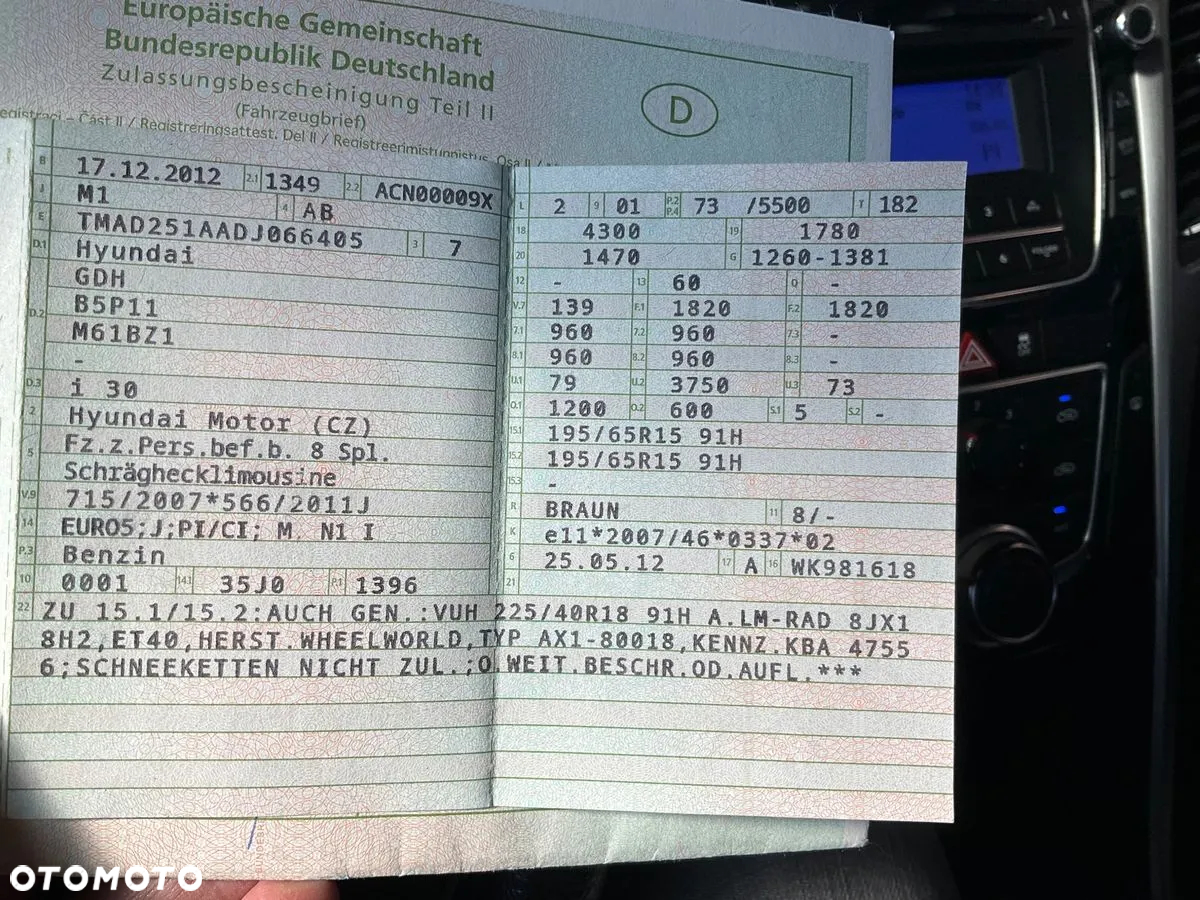 Europäische Gemeinschaft
Bundesrepublik Deutschland
Zulassungsbescheinigung Teil II
(Fahrzeugbrief)
Část II / Registreringsattest. Del II / Registreerimistunnistus. Osa II /
D
B 17.12.2012 2.1 1349 2.2 ACN00009X
J M1 4 AB
E TMAD251AADJ066405 3 7
D.1 Hyundai
GDH
D.2 B5P11
M61BZ1
-
D.3 i 30
2 Hyundai Motor (CZ)
5 Fz.z.Pers.bef.b. 8 Spl.
Schräghecklimousine
V.9 715/2007*566/2011J
14 EURO5;J;PI/CI; M, N1 I
P.3 Benzin
10 0001 14.1 35J0 P.1 1396
L 2 9 01 P.2 P.4 73 /5500 T 182
18 4300 19 1780
20 1470 G 1260-1381
12 - 13 60 Q -
V.7 139 F.1 1820 F.2 1820
7.1 960 7.2 960 7.3 -
8.1 960 8.2 960 8.3 -
U.1 79 U.2 3750 U.3 73
O.1 1200 O.2 600 S.1 5 S.2 -
15.1 195/65R15 91H
15.2 195/65R15 91H
15.3 -
R BRAUN 11 8/-
K e11*2007/46*0337*02
6 25.05.12 17 A 16 WK981618
21
22 ZU 15.1/15.2:AUCH GEN.:VUH 225/40R18 91H A.LM-RAD 8JX1
8H2,ET40,HERST.WHEELWORLD,TYP AX1-80018,KENNZ.KBA 4755
6;SCHNEEKETTEN NICHT ZUL.;O.WEIT.BESCHR.OD.AUFL.***
OTOMOTO